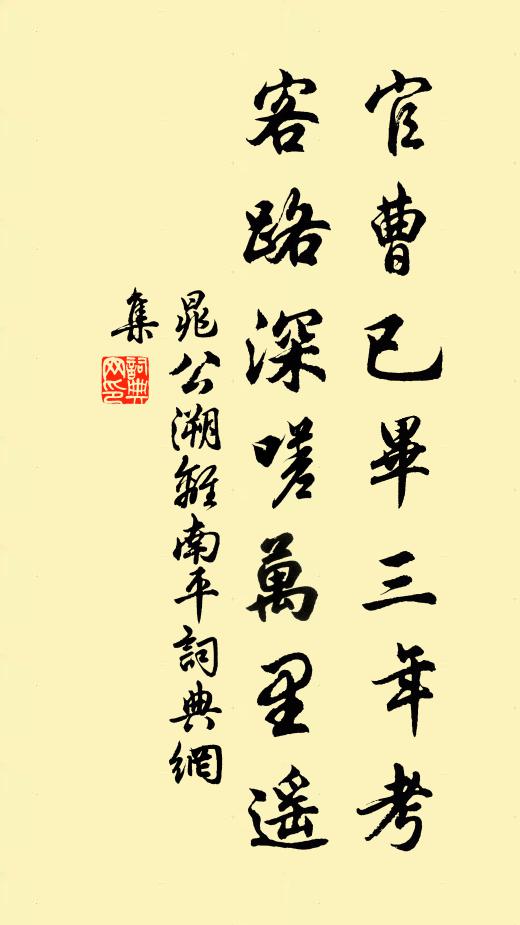 官曹已畢三年考
客路深嗟萬里遥
晁公溯離南平詞典網
集
詞典網印